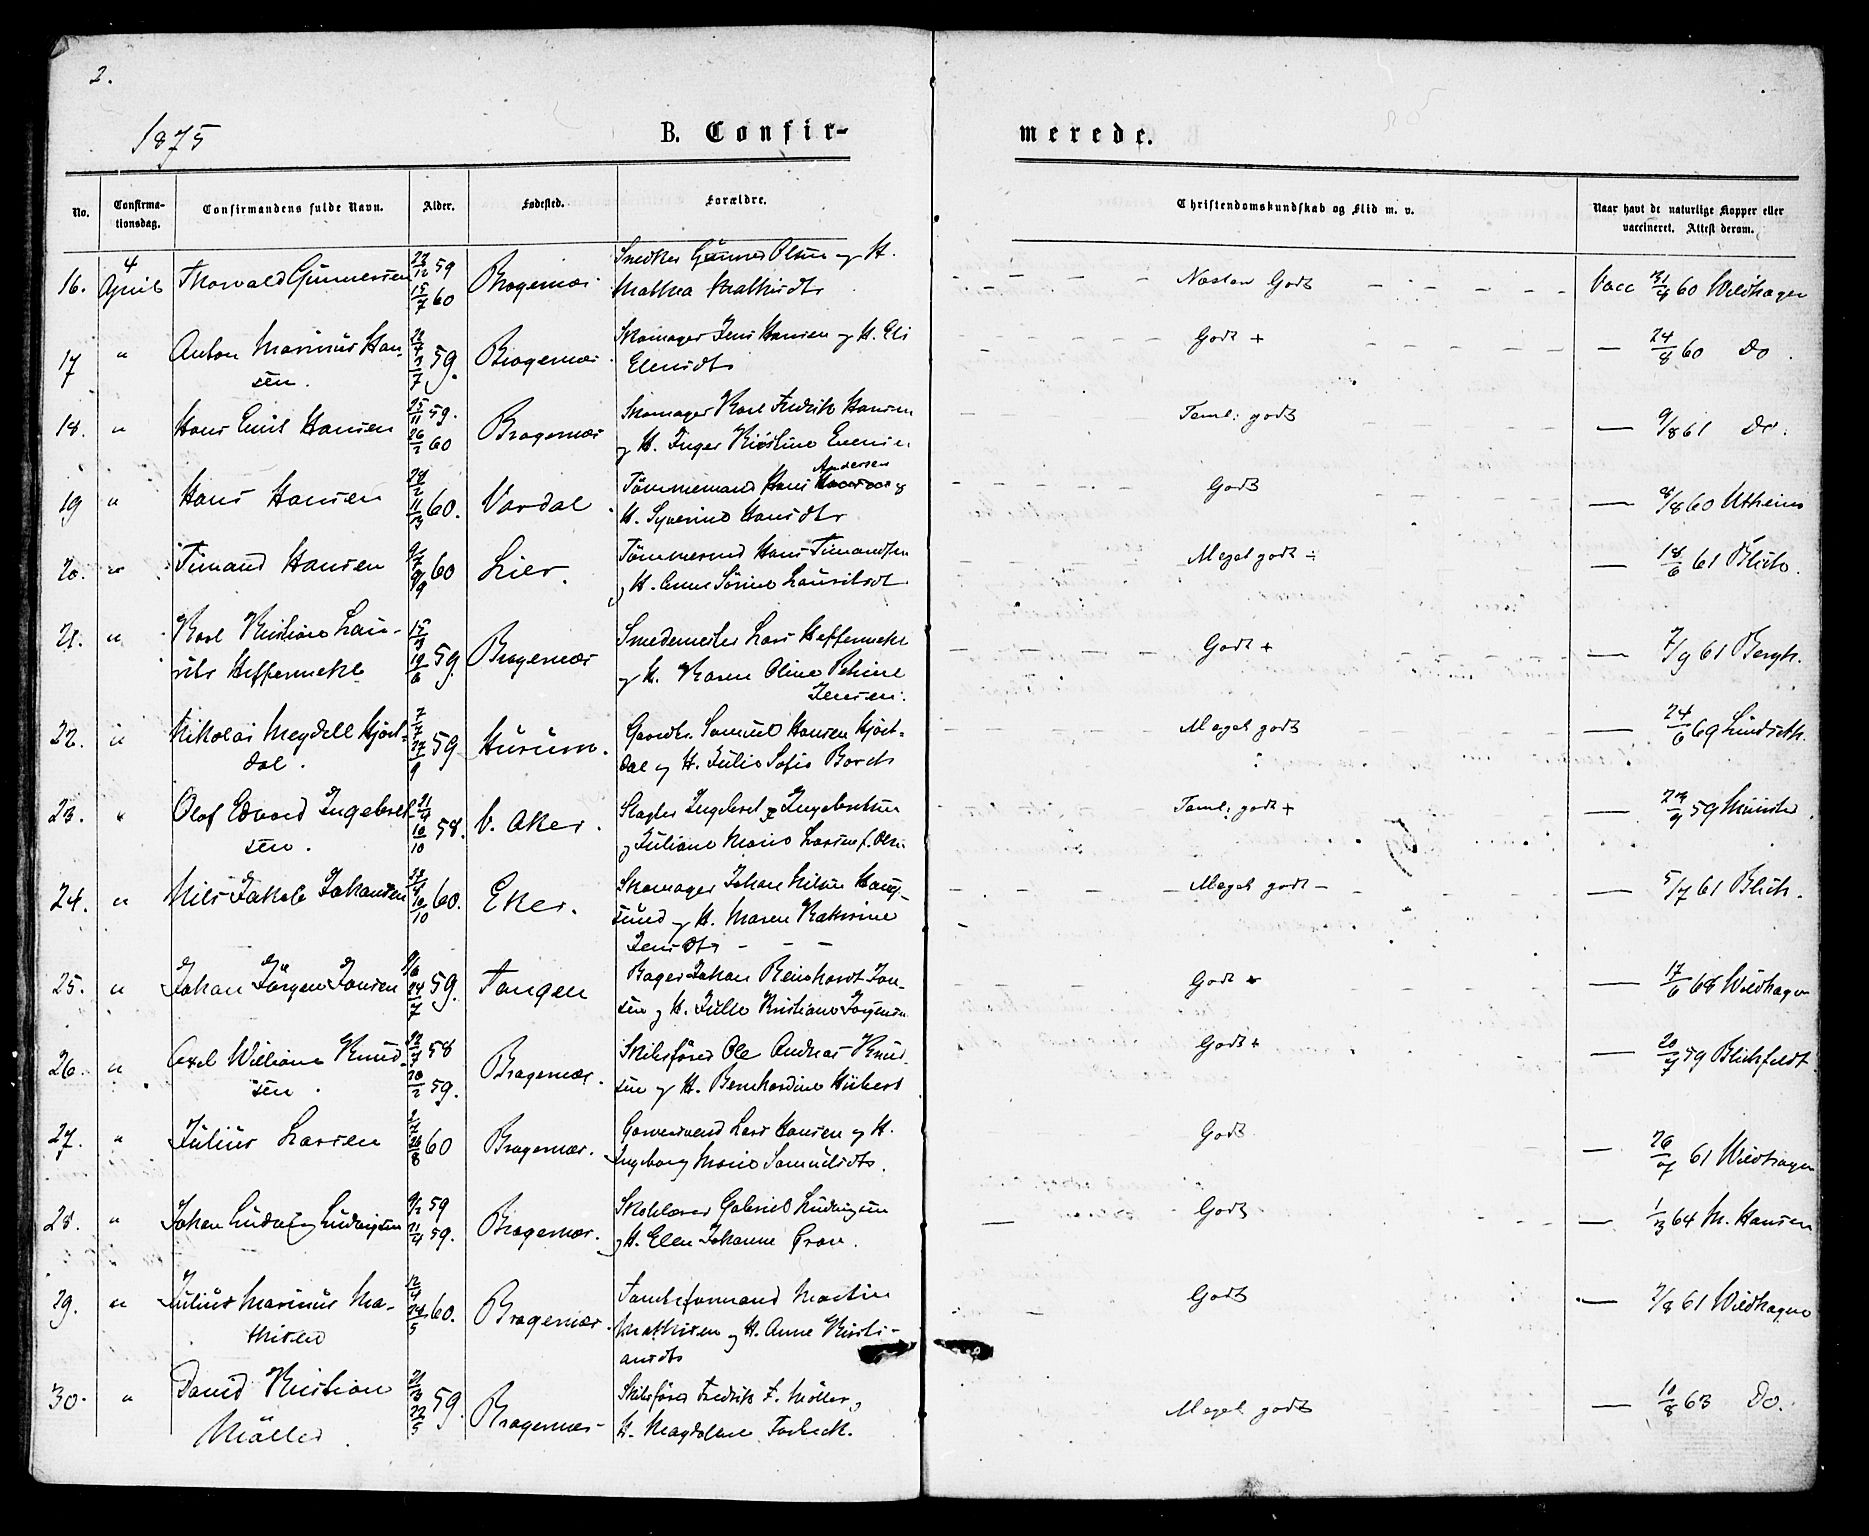 2.
1875
B. Confir-
merede.
No.
Confirma-
tionsdag.
Confirmandens fulde Navn.
Alder.
Fødested.
Forældre.
Christendomskundskab og Flid m. v.
Naar havt de naturlige Kopper eller
vaccineret. Attest derom.
16. 4 April Thorvald Gunnersen 59 60 Bragernæs Snedker Gunner Olsen og H. Næsten Godt Vacc 60 Wildhagen
17 " Anton Marinus Han- 59. Bragernæs Skomager Jens Hansen og H. Eli Godt + — 24/8 60 Do.
sen.
18. " Hans Emil Hansen 15/11 59. 26/2 60 Bragernæs Skomager Karl Fredrik Hansen Teml: godt — 9/8 61 Do.
og H. Inger Kristine
19 " Hans Hansen 60. Vardal Tømmermand Hans Andersen Godt — 8/8 60 Utheim
H. Syverine Hansdtr
20. " Timand Hansen 60 Lier. Tømmermd Hans Timandsen Meget godt ÷ — 18/6 61 Blich.
og H. Anne Sørine Lauritsdt
21. " Karl Kristian Lau- 59. Bragernæs Smedemester Lars Heffermehl Godt + — 7/9 61 Bergh.
rits Heffermehl og H. Karen Oline Petrine
Jensen.
22. " Nikolai Meydell Hjort- 7/7 27/9 59 Hurum. Gaardbr. Samuel Hansen Hjort- Meget godt — 24/6 69 Lindseth.
dal. dal og H. Julie Sofie Borch
23. " Olof Edvard Ingebret- 21/4 10/10 58. V. Aker. Slagter Ingebret Ingebretsen Teml: godt + — 59 Münster
sen. og Juliane Marie Larsen f. Olsen
24. " Nils Jakob Johansen 10/10 60. Eker. Skomager Johan Nilsen Haug- Meget godt - — 5/7 61 Blich.
sund og H. Maren Kathrine
Jensdtr - - -
25. " Johan Jørgen Jonsen 9/6 24/7 59. Tangen Bager Johan Reinhardt Jon- Godt + — 17/6 68 Wildhagen
sen og H. Julie Kristiane Jørgensen
26. " Axel William Knud- 58 Bragernæs. Skibsfører Ole Andreas Knud- Godt + — 59 Blichfeldt
sen. 20/2 59. sen og H. Bernhardine Hübert
27. " Julius Larsen 60 Bragernæs. Garversvend Lars Hansen og H. Godt — 61 Wildhagen
Ingeborg Marie Samuelsdtr.
28. " Johan Ludvig Ludvigsen 9/2 59 21/4 59. Bragernæs. Skolelærer Gabriel Ludvigsen Godt — 1/3 64 M. Hansen
og H. Elen Johanne Gran.
29. " Julius Marinus Ma- 12/4 24/5 60. Bragernæs. Tomteformand Martin Godt — 7/8 61 Wildhagen
thisen Mathisen og H. Anne Kristi-
ansdtr
30. " David Kristian 22/5 59. Bragernæs Skibsfører Fredrik F. Møller, Meget godt — 10/8 63 Do.
Møller. H. Magdalene Forbech.